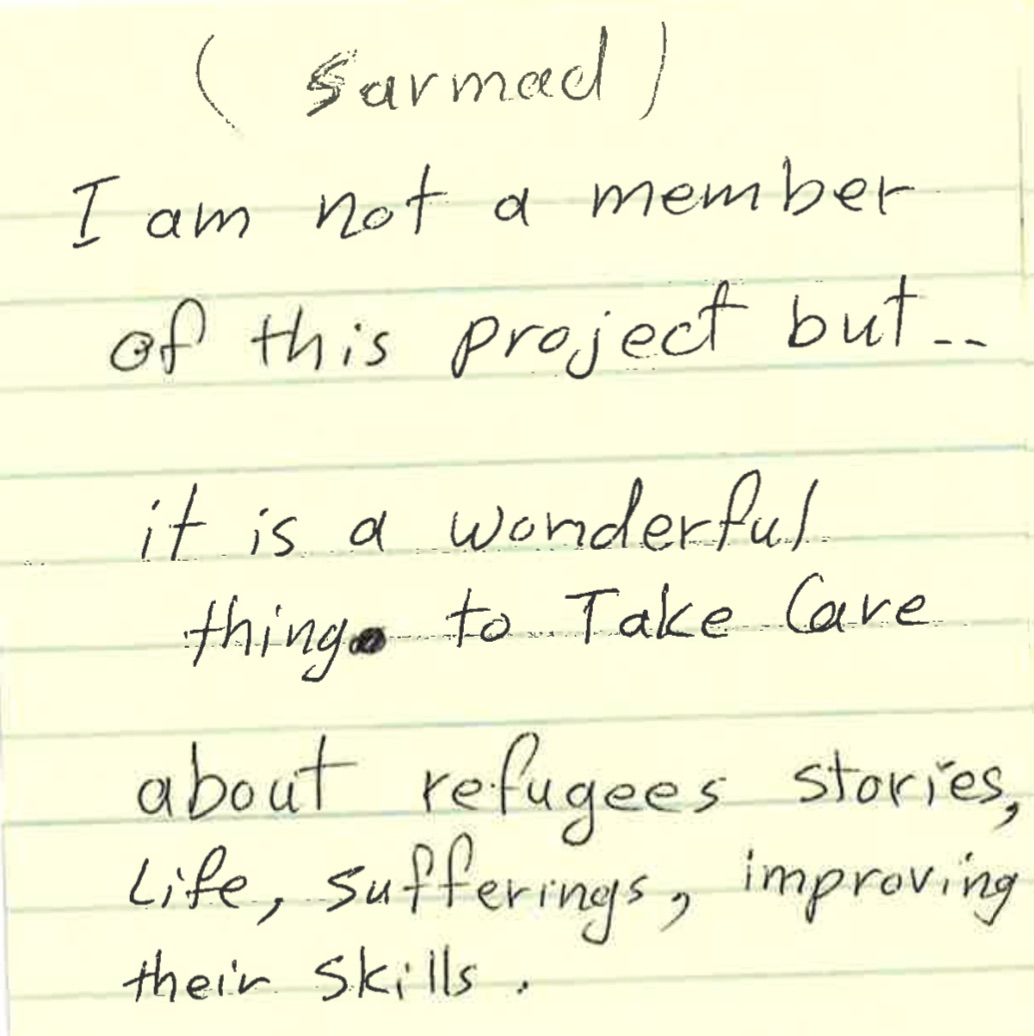 ( Sarmad )
I am not a member
of this project but--
it is a wonderful
thing to Take Care
about refugees stories,
Life, sufferings, improving
their skills.